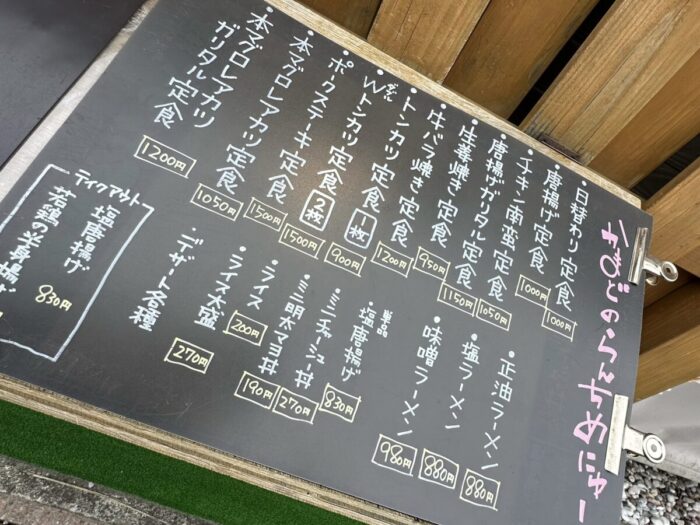 \かまどのらんちめにゅー
・日替わり定食 1000円
・唐揚げ定食 1000円
・チキン南蛮定食 1050円
・唐揚げガリタル定食 1150円
・生姜焼き定食 950円
・牛バラ焼き定食 1200円
・トンカツ定食 1枚 900円
・Wダブルトンカツ定食 2枚 1500円
・ポークステーキ定食 1500円
・本マグロレアカツ定食 1050円
・本マグロレアカツ
ガリタル定食 1200円
・正油ラーメン 880円
・塩ラーメン 880円
・味噌ラーメン 980円
・単品
塩唐揚げ 830円
・ミニチャーシュー丼 270円
・ミニ明太マヨ丼 190円
・ライス 200円
・ライス大盛
・デザート各種 270円
テイクアウト
塩唐揚げ 830円
若鶏の半身揚げ